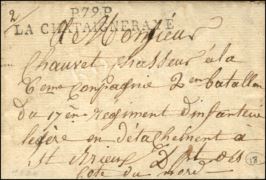 2/
P.79.P.
LA CHATAIGNERAYE
A Monsieur
Chauvet Chasseur à la
6eme Compagnie 2e Bataillon
du 17eme Regiment d'infanterie
légère en détachement à
St Brieux Dpt des
Cote du nord